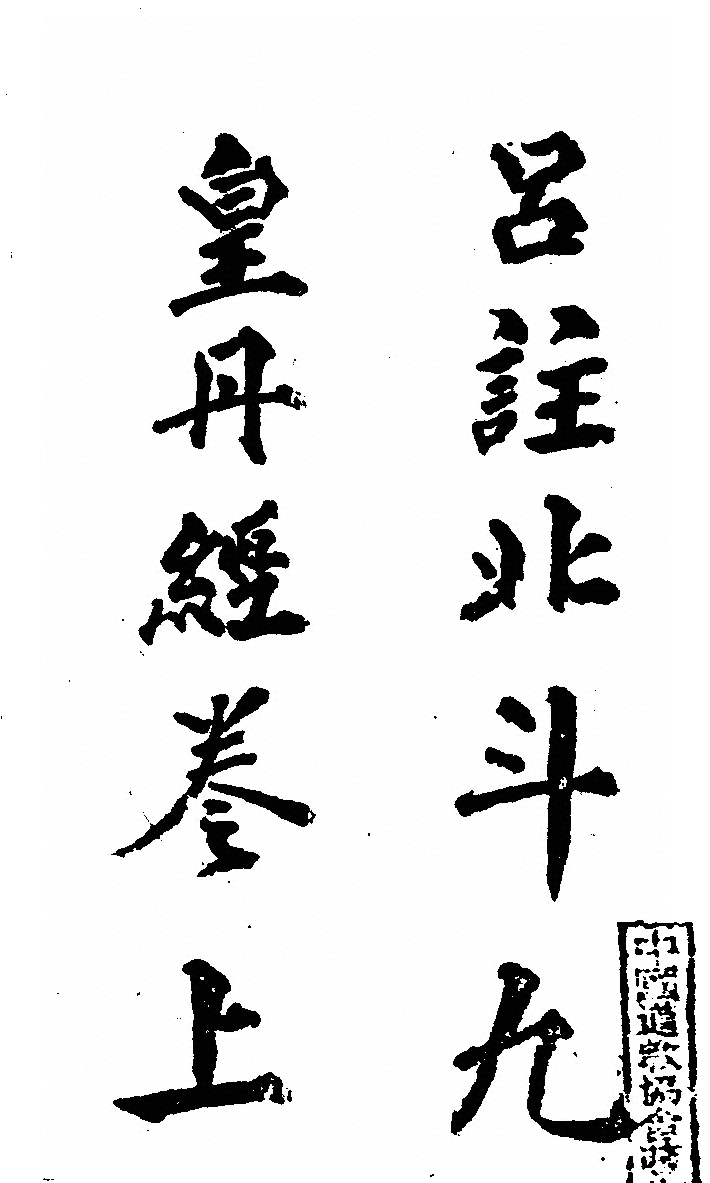 呂註北斗九
皇丹經卷上
中國道教協會